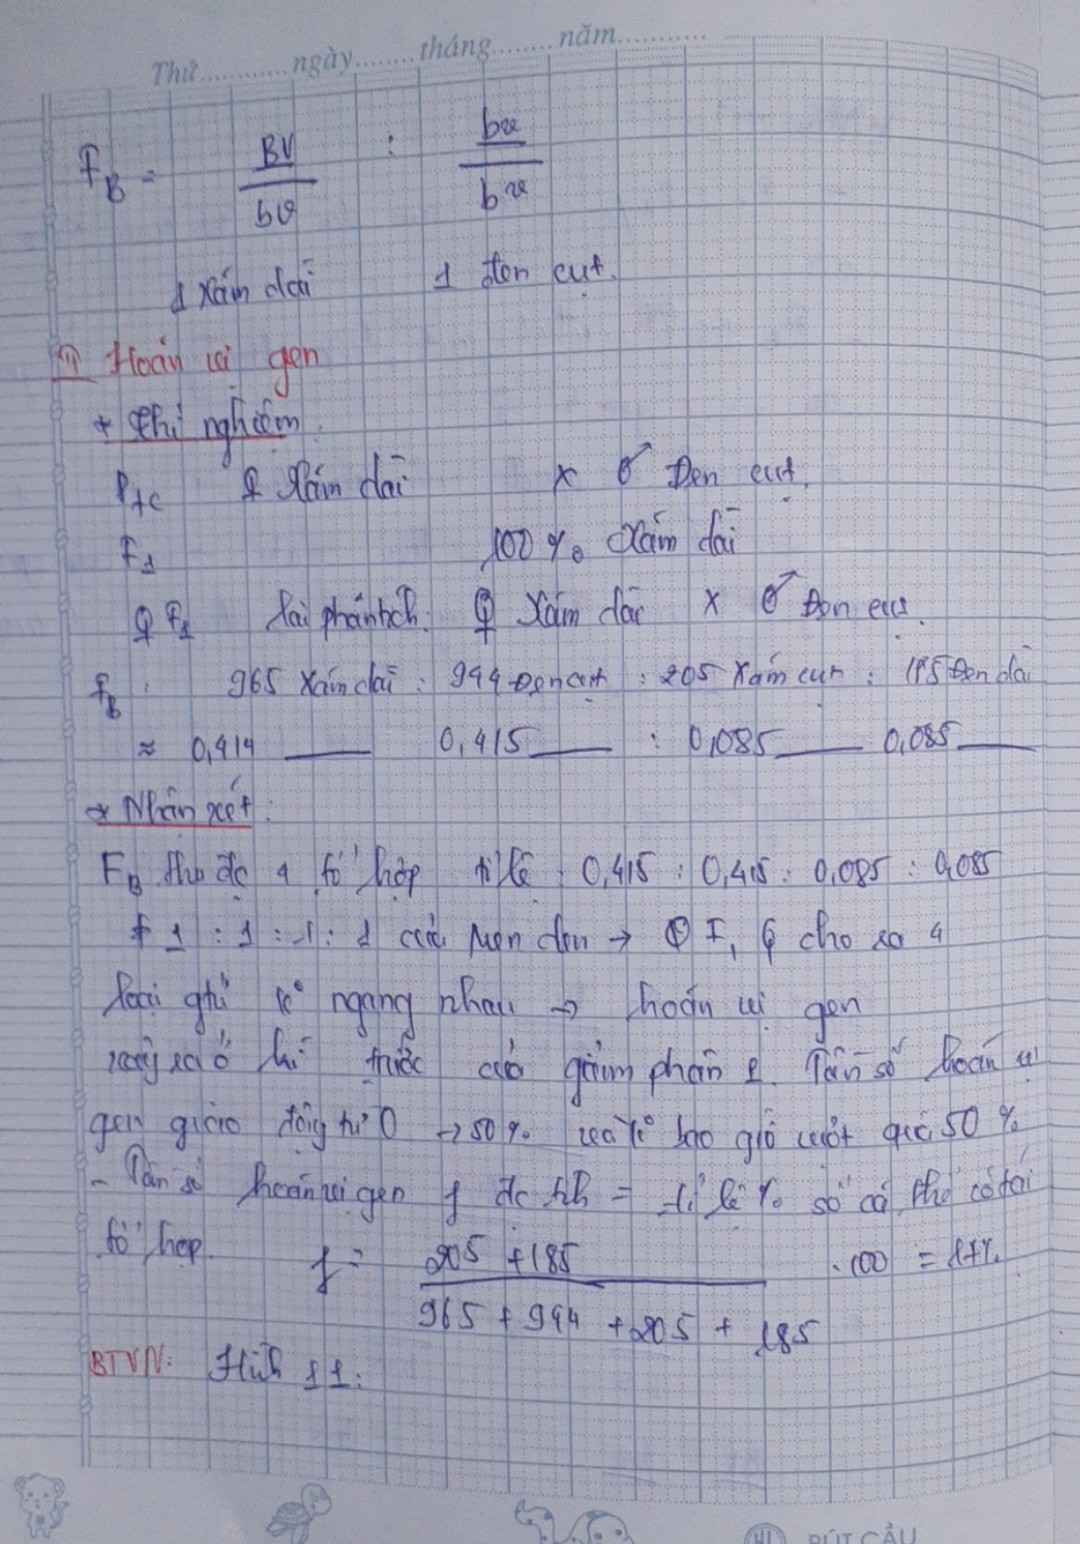 Thứ............ngày........tháng........năm............
F_B = BV/bv : bv/bv
1 Xám dài 1 đen cụt.
II Hoán vị gen
* Thí nghiệm.
P_t/c ♀ Xám dài x ♂ Đen cụt.
F_1 100% Xám dài
♀ F_1 lai phân tích: ♀ Xám dài x ♂ Đen cụt.
F_B : 965 Xám dài : 944 Đen cụt : 205 Xám cụt : 185 Đen dài
≈ 0,414 ___ 0,415 ___ : 0,085 ___ 0,085 ___
* Nhận xét:
F_B thu đc 4 tổ hợp tỉ lệ 0,415 : 0,415 : 0,085 : 0,085
≠ 1 : 1 : 1 : 1 của Men đen → F_1 ♀ cho ra 4
loại gtử ko ngang nhau → hoán vị gen
xảy ra ở kì trước của giảm phân 1. Tần số hoán vị
gen giao động từ 0 → 50% và ko bao giờ vượt quá 50%
- Tần số hoán vị gen f đc tính = tỉ lệ % số cá thể có tái
tổ hợp.
f = (205 + 185)/(965 + 944 + 205 + 185) . 100 = 17%
BTVN: Hình 11.
BÚT CẦU